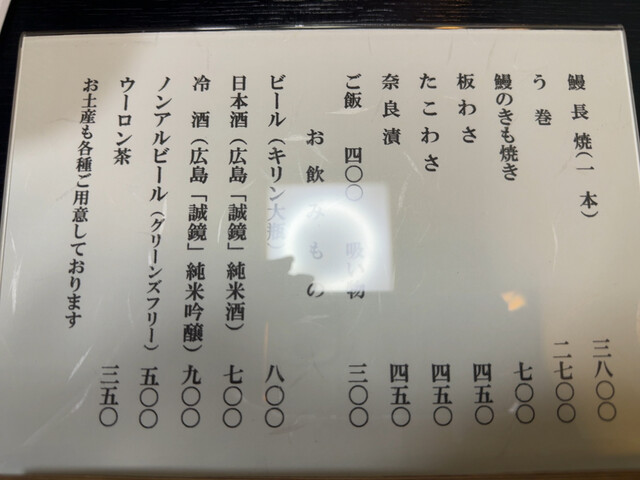 鰻長焼(一本) 三八〇〇
う巻 二七〇〇
鰻のきも焼き 七〇〇
板わさ 四五〇
たこわさ 四五〇
奈良漬 四五〇
ご飯 四〇〇 吸い物 三〇〇
お飲みもの
ビール(キリン大瓶) 八〇〇
日本酒(広島「誠鏡」純米酒) 七〇〇
冷酒(広島「誠鏡」純米吟醸) 九〇〇
ノンアルビール(グリーンズフリー) 五〇〇
ウーロン茶 三五〇
お土産も各種ご用意しております